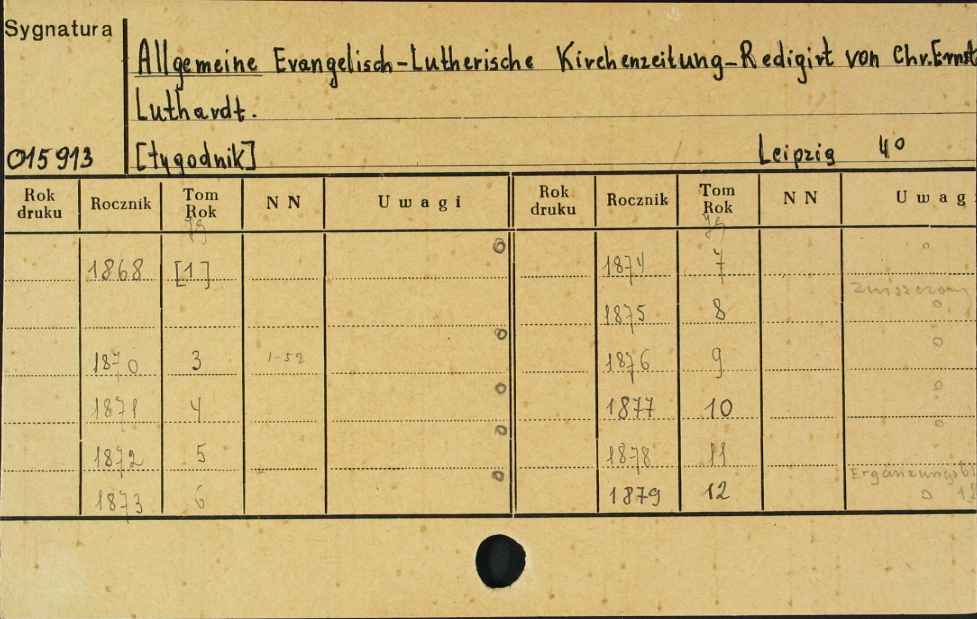 Sygnatura
Allgemeine Evangelisch-Lutherische Kirchenzeitung-Redigirt von Chr. Ernst
Luthardt.
015913 [tygodnik] Leipzig 4º
Rok druku Rocznik Tom Rok NN Uwagi Rok druku Rocznik Tom Rok NN Uwag
Jg Jg
1868 [1] 1874 7
1875 8
1870 3 1-52 1876 9
1871 4 1877 10
1872 5 1878 11
1873 6 1879 12